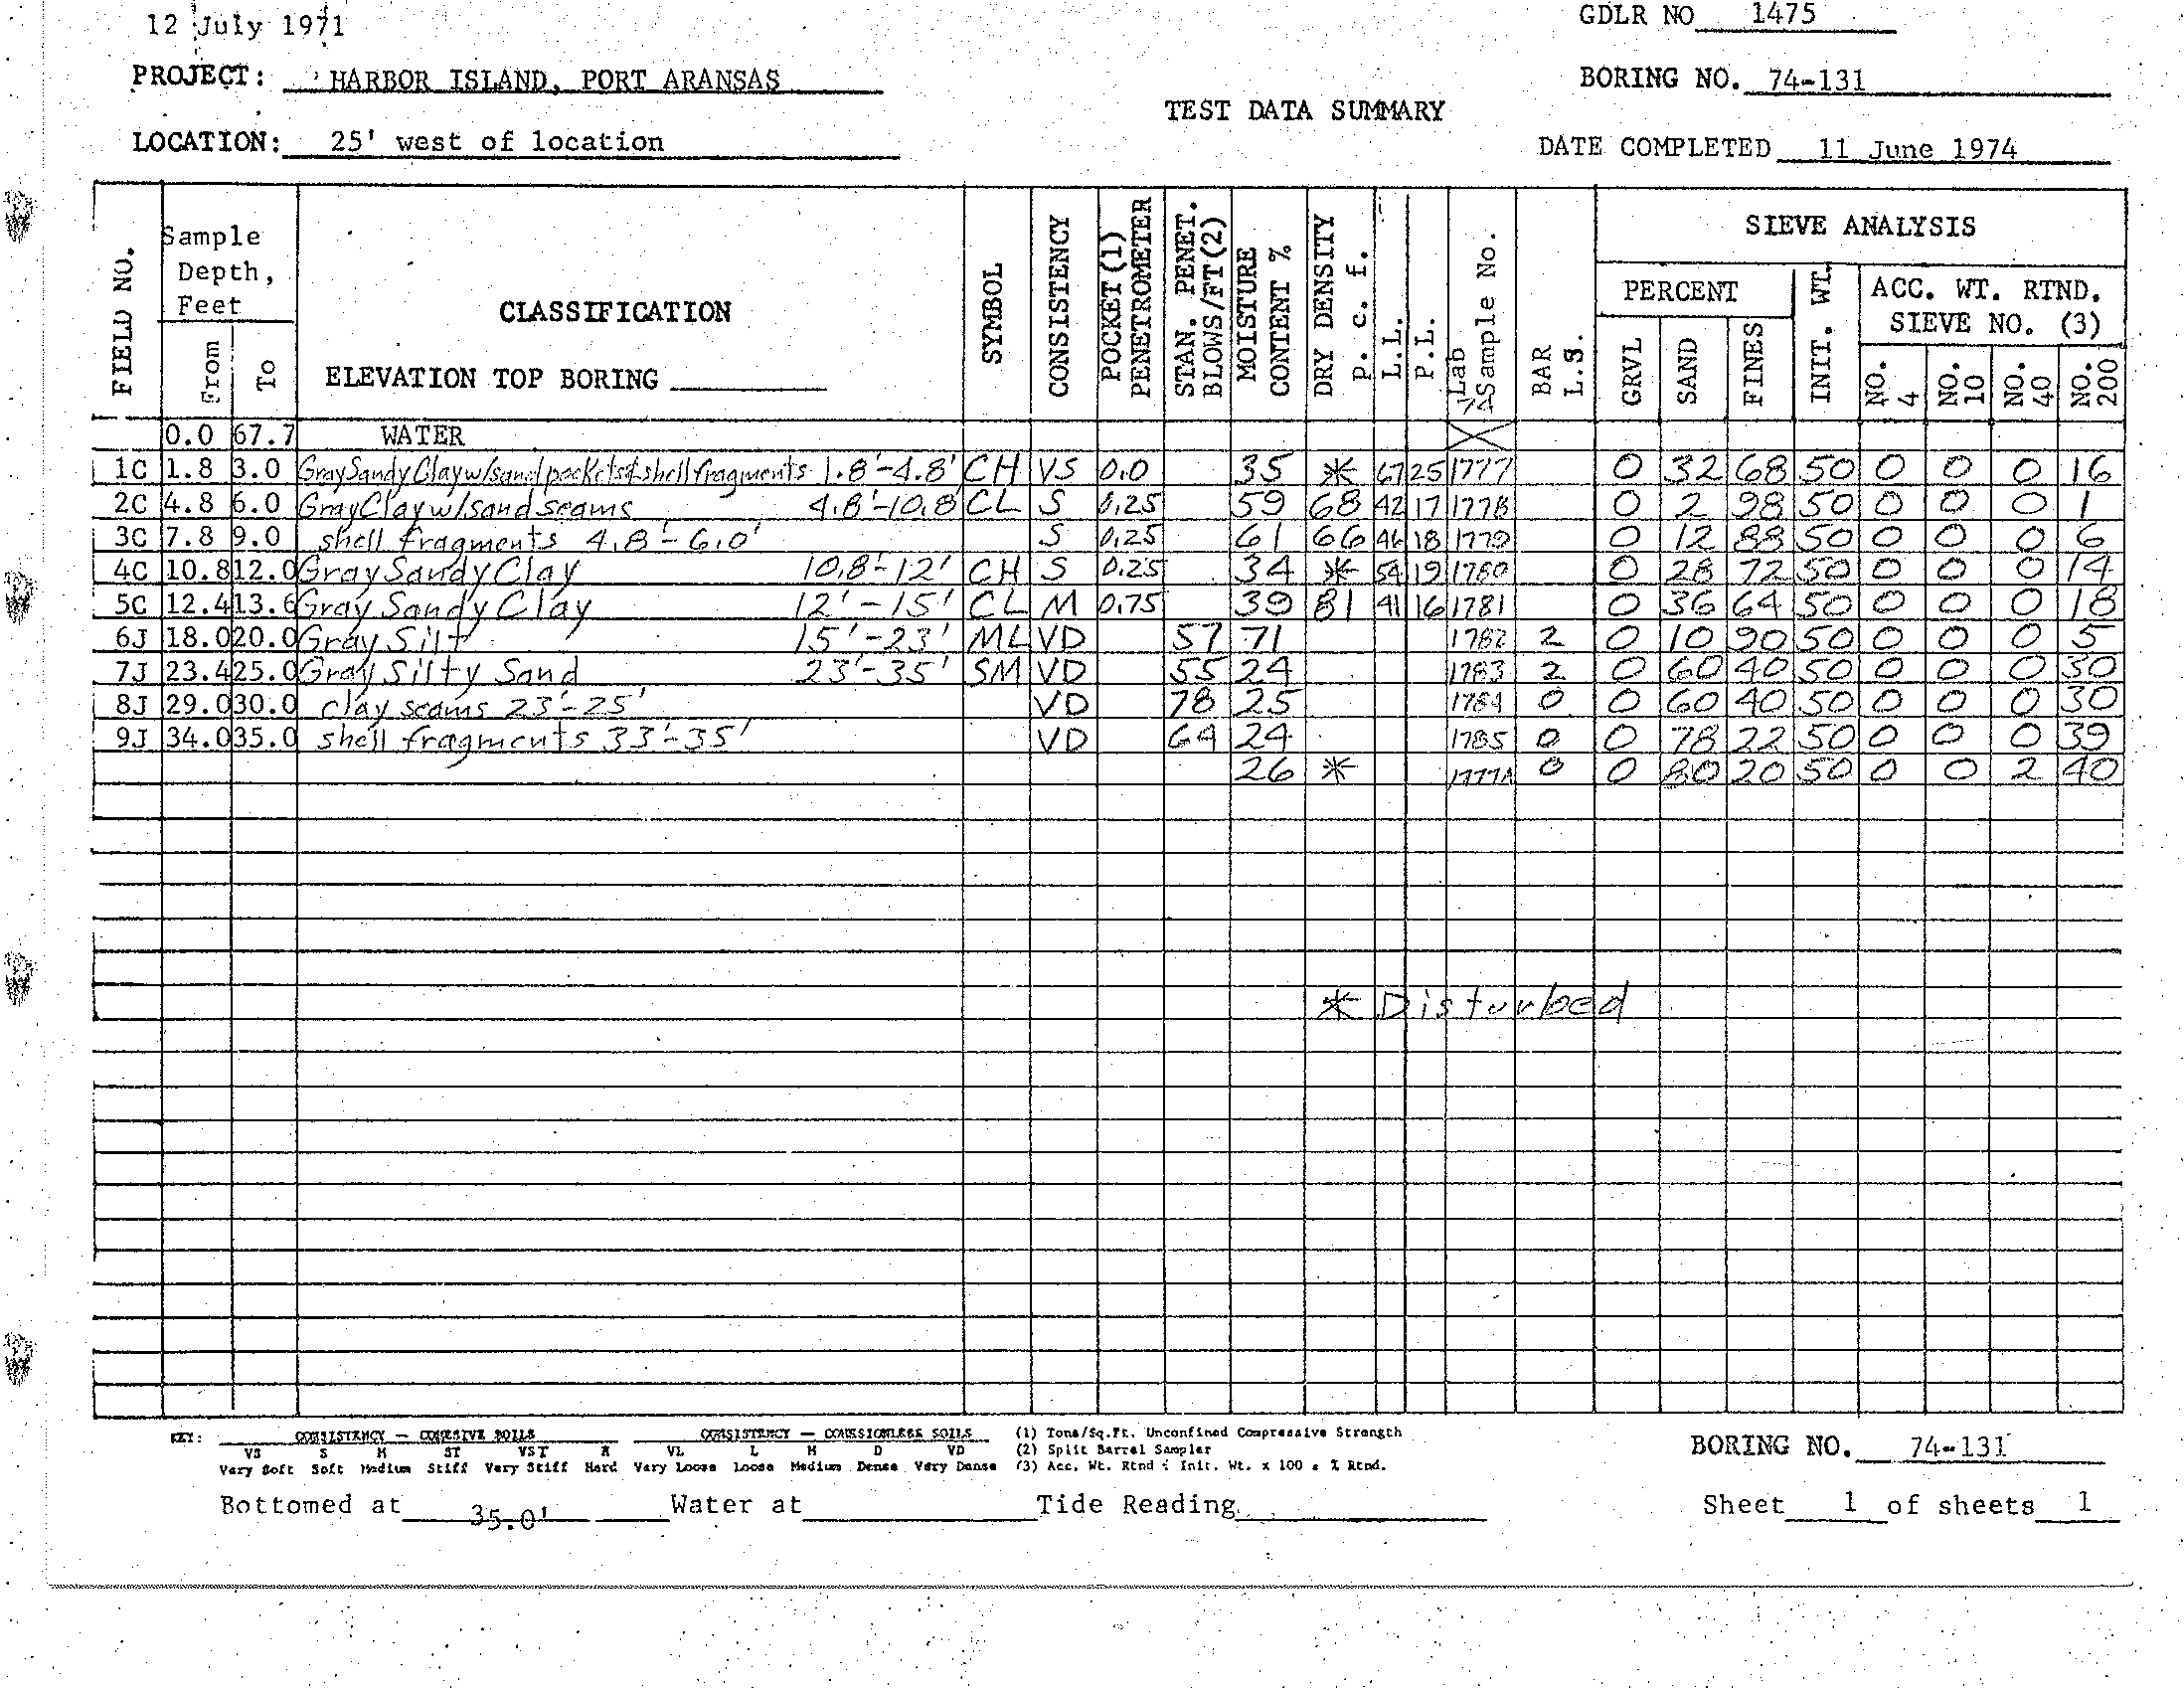 12 July 1971
GDLR NO 1475
PROJECT: HARBOR ISLAND, PORT ARANSAS
BORING NO. 74-131
TEST DATA SUMMARY
LOCATION: 25' west of location
DATE COMPLETED 11 June 1974
FIELD NO.
Sample Depth, Feet
From
To
CLASSIFICATION
ELEVATION TOP BORING
SYMBOL
CONSISTENCY
POCKET (1) PENETROMETER
STAN. PENET. BLOWS/FT (2)
MOISTURE CONTENT %
DRY DENSITY P. c. f.
L.L.
P.L.
Lab Sample No.
74
BAR L.S.
SIEVE ANALYSIS
PERCENT
GRVL
SAND
FINES
INIT. WT.
ACC. WT. RTND. SIEVE NO. (3)
NO. 4
NO. 10
NO. 40
NO. 200
0.0 67.7 WATER
1C 1.8 3.0 Gray Sandy Clay w/sand pockets & shell fragments 1.8'-4.8' CH VS 0.0 35 * 67 25 1777 0 32 68 50 0 0 0 16
2C 4.8 6.0 Gray Clay w/sand seams 4.8'-10.8 CL S 0.25 59 68 42 17 1778 0 2 98 50 0 0 0 1
3C 7.8 9.0 shell fragments 4.8'-6.0' S 0.25 61 66 46 18 1779 0 12 88 50 0 0 0 6
4C 10.8 12.0 Gray Sandy Clay 10.8'-12' CH S 0.25 34 * 54 19 1780 0 28 72 50 0 0 0 14
5C 12.4 13.6 Gray Sandy Clay 12'-15' CL M 0.75 39 81 41 16 1781 0 36 64 50 0 0 0 18
6J 18.0 20.0 Gray Silt 15'-23' ML VD 57 71 1782 2 0 10 90 50 0 0 0 5
7J 23.4 25.0 Gray Silty Sand 23'-35' SM VD 55 24 1783 2 0 60 40 50 0 0 0 30
8J 29.0 30.0 clay seams 23'-25' VD 78 25 1784 0 0 60 40 50 0 0 0 30
9J 34.0 35.0 shell fragments 33'-35' VD 64 24 1785 0 0 78 22 50 0 0 0 39
26 * 1777A 0 0 80 20 50 0 0 2 40
* Disturbed
KEY: CONSISTENCY — COHESIVE SOILS CONSISTENCY — COHESIONLESS SOILS (1) Tons/Sq.Ft. Unconfined Compressive Strength
VS S M ST VST H VL L M D VD (2) Split Barrel Sampler
Very Soft Soft Medium Stiff Very Stiff Hard Very Loose Loose Medium Dense Very Dense (3) Acc. Wt. Rtnd ÷ Init. Wt. x 100 = % Rtnd.
BORING NO. 74-131
Bottomed at 35.0' Water at Tide Reading
Sheet 1 of sheets 1